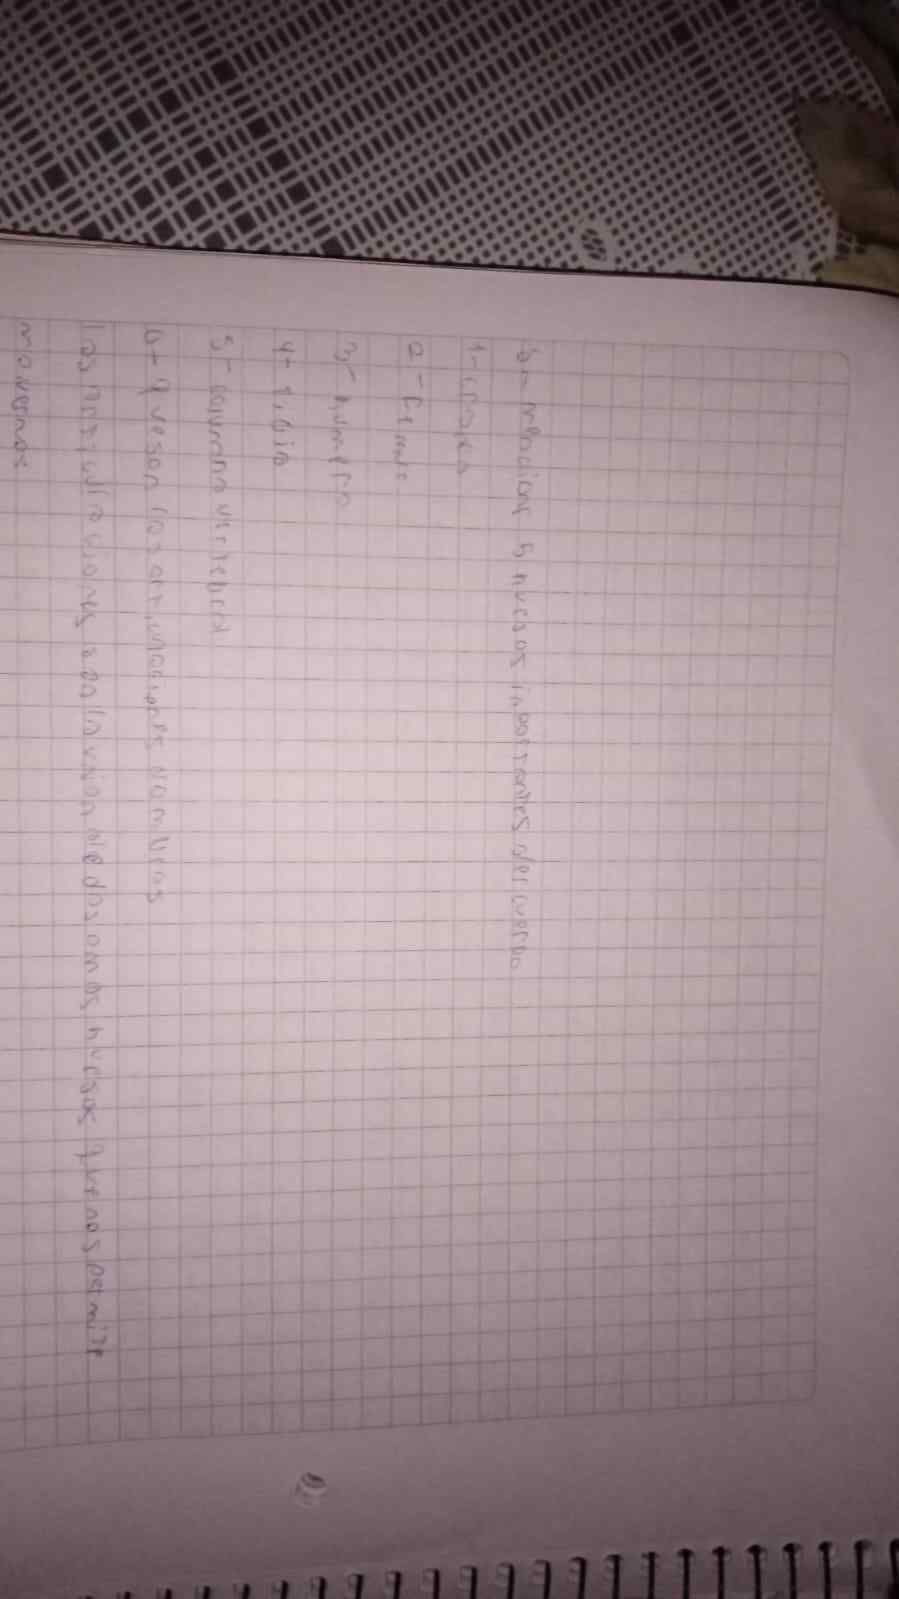 5- menciona 5 huesos importantes del cuerpo
1- craneo
2- femur
3- humero
4- tibia
5- columna vertebral
6- que son las articulaciones nombras
las articulaciones son la union de dos o mas huesos que nos permite
movernos